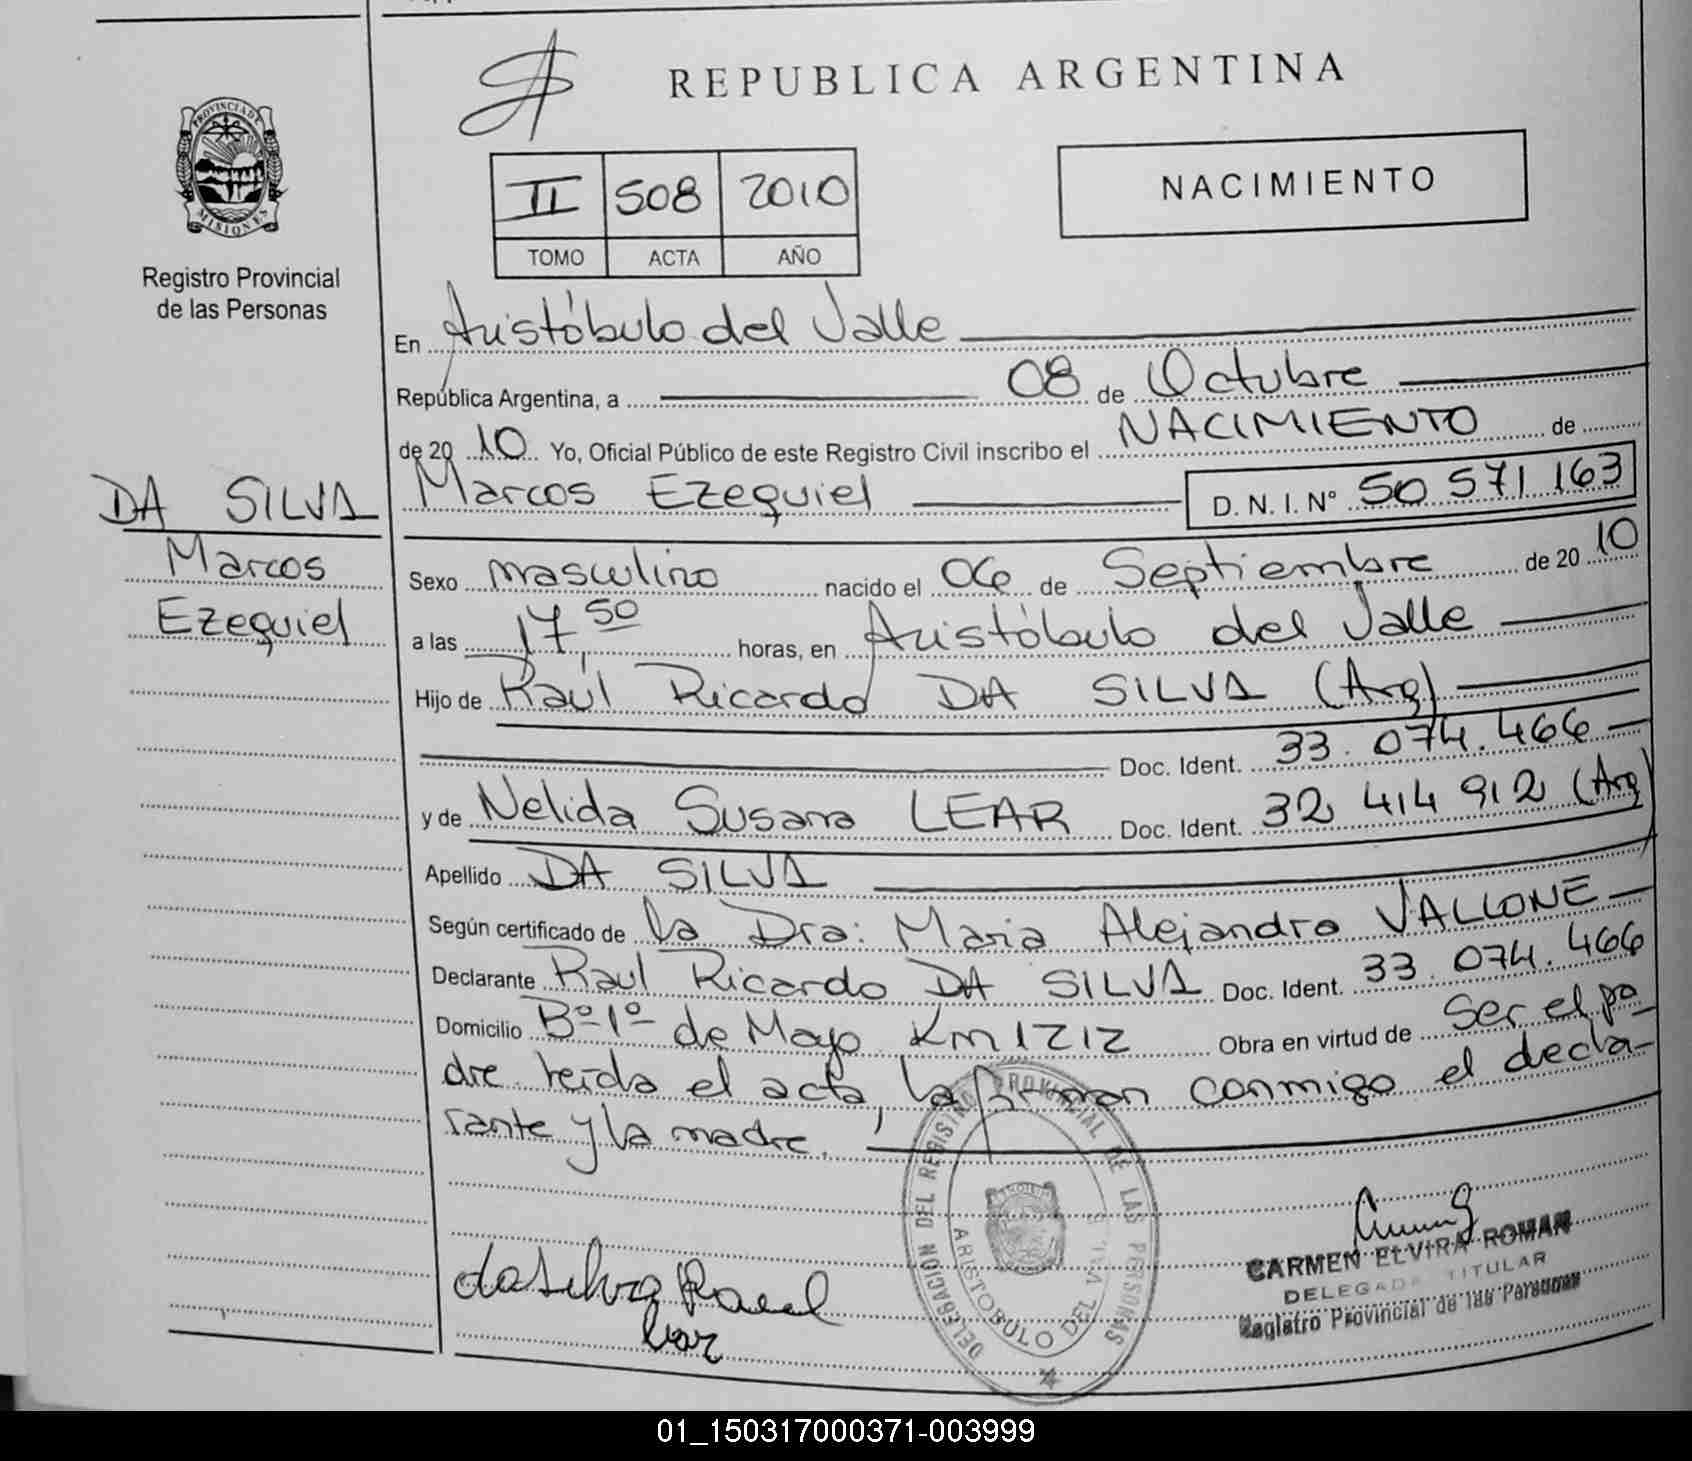 REPUBLICA ARGENTINA
PROVINCIA DE
MISIONES
Registro Provincial
de las Personas
II 508 2010
TOMO ACTA AÑO
NACIMIENTO
En Aristóbulo del Valle
República Argentina, a 08 de Octubre
de 20 10 Yo, Oficial Público de este Registro Civil inscribo el NACIMIENTO de
DA SILVA
Marcos
Ezequiel
Marcos Ezequiel D. N. I. N° 50 571 163
Sexo masculino nacido el 06 de Septiembre de 20 10
a las 17,50 horas, en Aristóbulo del Valle
Hijo de Raúl Ricardo DA SILVA (Arg)
Doc. Ident. 33.074.466
y de Nelida Susana LEAR Doc. Ident. 32 414 912 (Arg)
Apellido DA SILVA
Según certificado de la Dra: Maria Alejandra VALLONE
Declarante Raul Ricardo DA SILVA Doc. Ident. 33.074.466
Domicilio Bº 1º de Mayo Km 1212 Obra en virtud de ser el pa-
dre. leida el acta, la firman conmigo el decla-
rante y la madre.
DELEGACION DEL REGISTRO PROVINCIAL DE LAS PERSONAS
ARISTOBULO DEL VALLE
da Silva Raul
lear
CARMEN ELVIRA ROMAN
DELEGADA TITULAR
Registro Provincial de las Personas
01_150317000371-003999